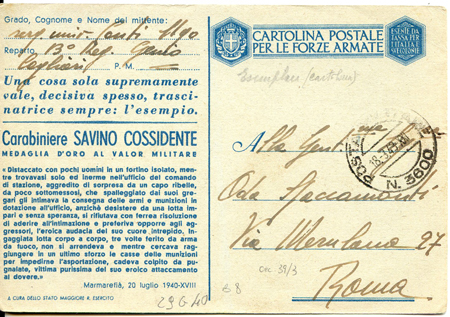 Grado, Cognome e Nome del mittente:
serg. univ. Conti Ugo
Reparto 13° Reg. Genio
Cagliari P. M.
Una cosa sola supremamente
vale, decisiva spesso, trasci-
natrice sempre: l'esempio.
Carabiniere SAVINO COSSIDENTE
MEDAGLIA D'ORO AL VALOR MILITARE
« Distaccato con pochi uomini in un fortino isolato, men-
tre trovavasi solo ed inerme nell'ufficio del comando
di stazione, aggredito di sorpresa da un capo ribelle,
da poco sottomessosi, che spalleggiato dai suoi gre-
gari gli intimava la consegna delle armi e munizioni in
dotazione all'ufficio, anziché desistere da una lotta im-
pari e senza speranza, si rifiutava con ferrea risoluzione
di aderire all'intimazione e preferiva opporre agli ag-
gressori, l'eroica audacia del suo cuore intrepido. In-
gaggiata lotta corpo a corpo, tre volte ferito da arma
da fuoco, non si arrendeva e mentre cercava rag-
giungere in un ultimo sforzo le casse delle munizioni
per impedirne l'asportazione, cadeva colpito da pu-
gnalate, vittima purissima del suo eroico attaccamento
al dovere».
Marmaretià, 20 luglio 1940-XVIII
A CURA DELLO STATO MAGGIORE R. ESERCITO
29 G 40
CARTOLINA POSTALE
PER LE FORZE ARMATE
ESENTE DA
TASSA PER
L'ITALIA E
LE COLONIE
Esemplare (cartolina)
POSTA
N. 3600
Alla Gent.ma
Oda
Via Merulana 27
Roma
cec 39/3
€ 8